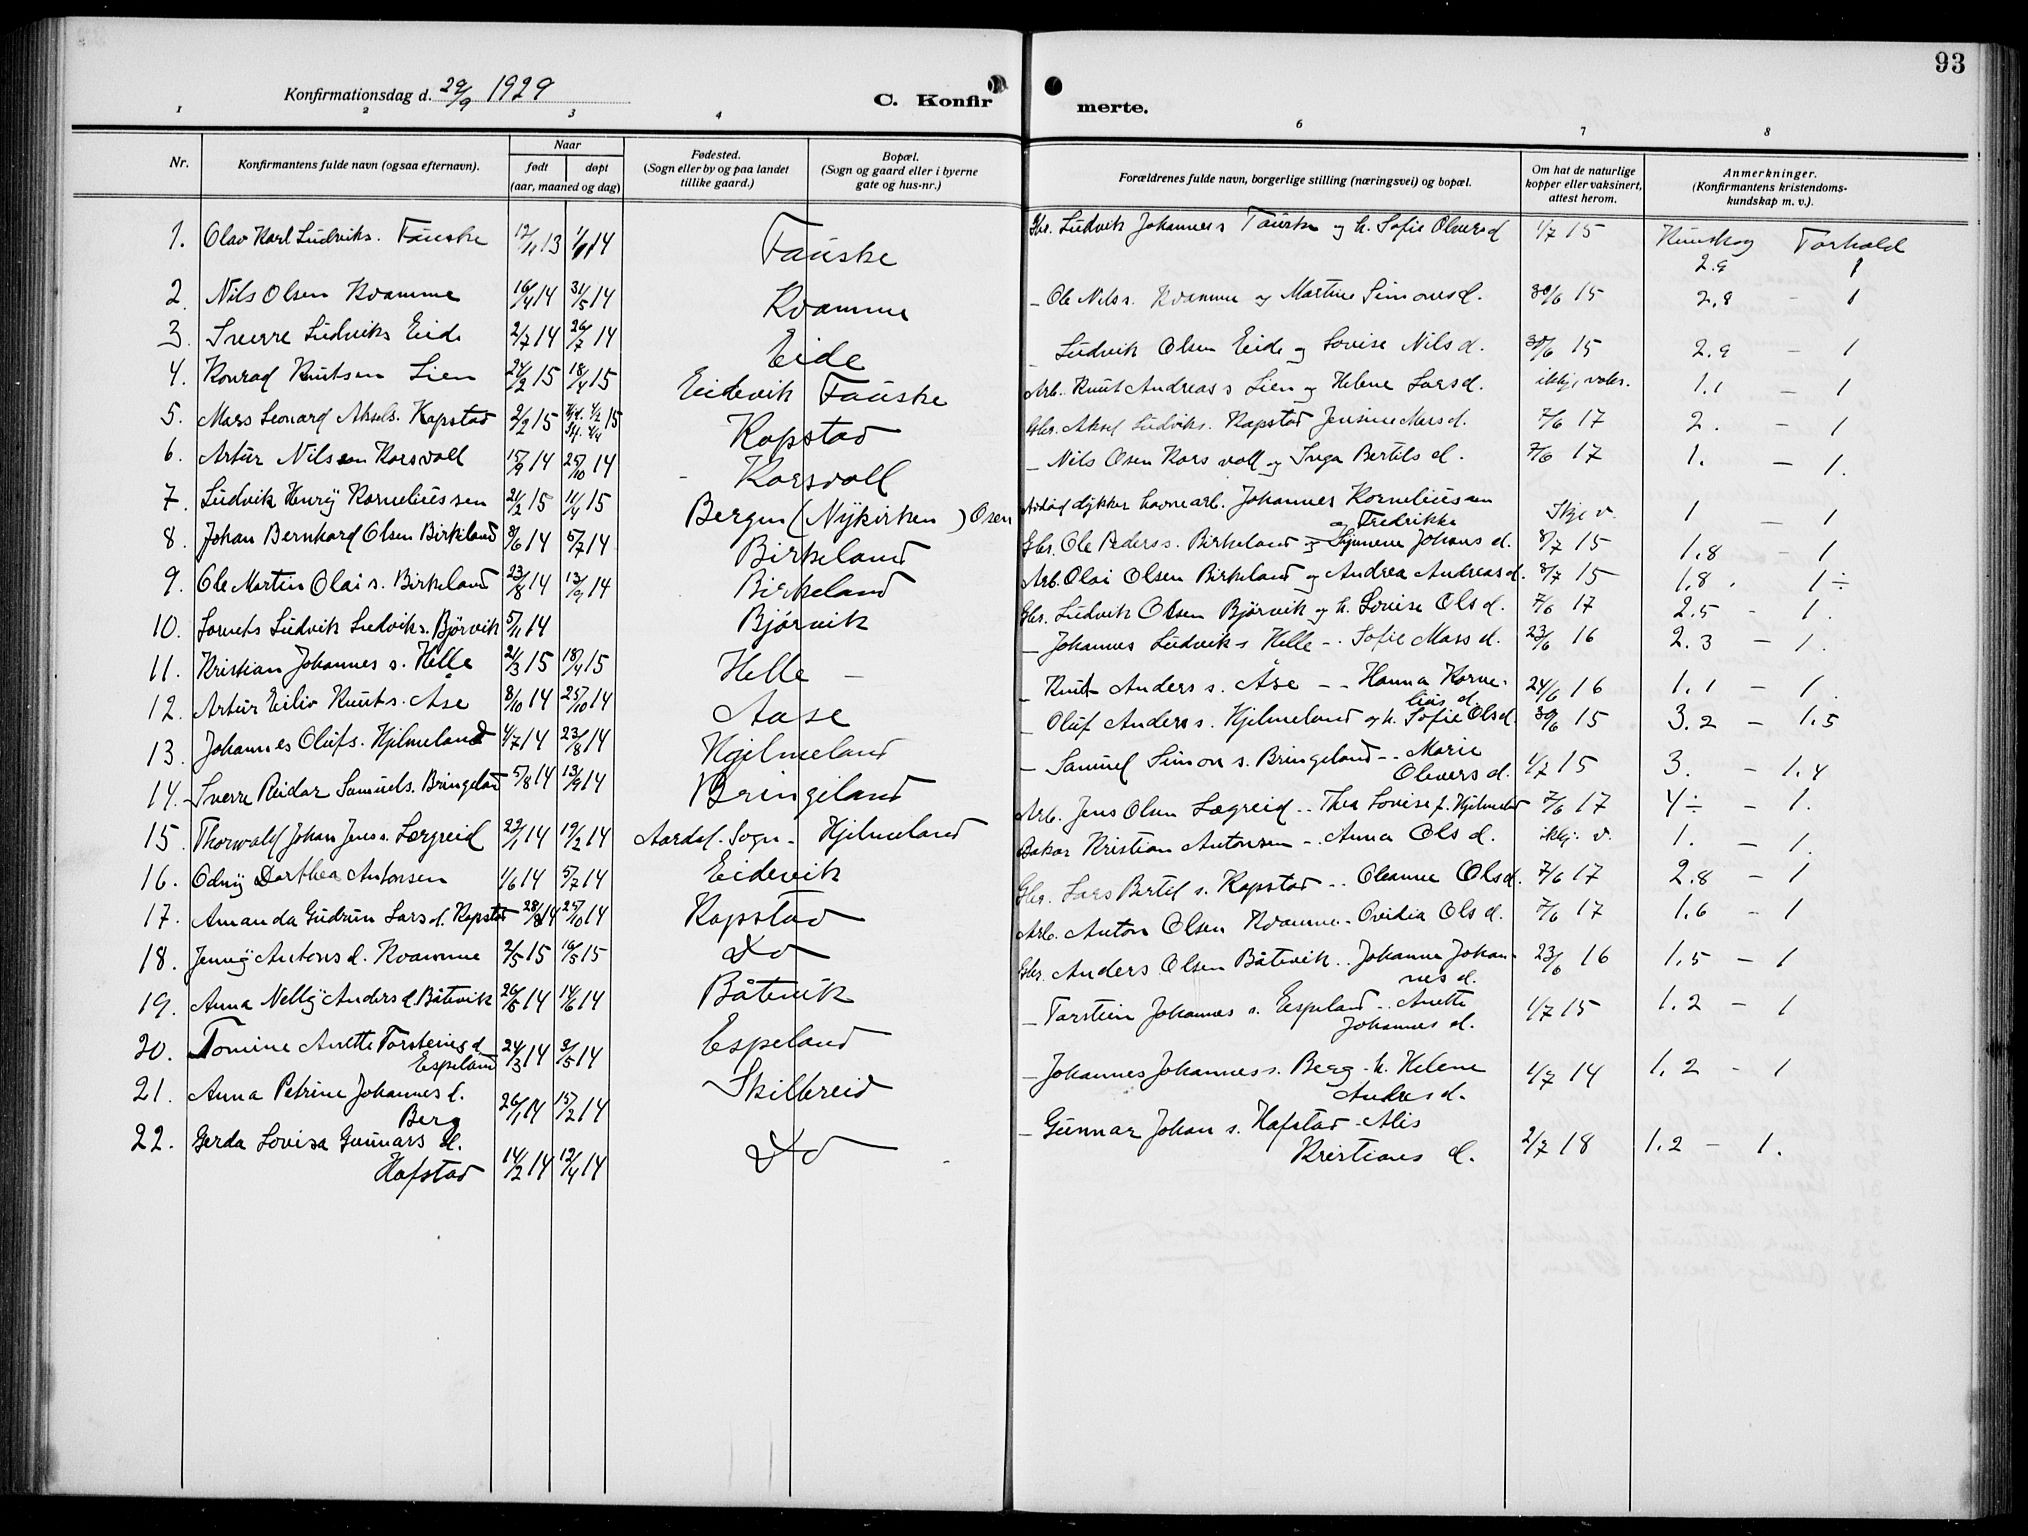 93
Konfirmationsdag d. 29/9 1929
C. Konfir merte.
1 2 3 4 6 7 8
Nr. Konfirmantens fulde navn (ogsaa efternavn). Naar født døpt (aar, maaned og dag) Fødested. (Sogn eller by og paa landet tillike gaard.) Bopæl. (Sogn og gaard eller i byerne gate og hus-nr.) Forældrenes fulde navn, borgerlige stilling (næringsvei) og bopæl. Om hat de naturlige kopper eller vaksinert, attest herom. Anmerkninger. (Konfirmantens kristendoms- kundskap m. v.).
Kunskog Forhold
1. Olav Karl Ludviks. Fauske 12/11 13 1/1 14 Fauske Gbr. Ludvik Johannes s Fauske og h. Sofie Olversd 1/7 15 2.9 1
2. Nils Olsen Kvamme 16/4 14 31/5 14 Kvamme – Ole Nils s. Kvamme og Martine Simonsd. 30/6 15 2.8 – 1
3. Sverre Ludviks Eide 2/7 14 26/7 14 Eide – Ludvik Olsen Eide og Lovise Nils d. 30/6 15 2.9 – 1
4. Konrad Knutsen Lien 24/2 15 18/4 15 Eidevik Fauske Arb. Knut Andreas s Lien og Helene Larsd. ikkje vaks. 1.1 – 1
5. Mars Leonard Aksels. Kapstad 2/2 15 15 Kapstad Gbr. Aksel Ludviks. Kapstad Jensine Marsd. 7/6 17 2. – 1
6. Artur Nilssen Korsvoll 15/9 14 25/10 14 – Korsvoll – Nils Olsen Korsvoll og Inga Bertils d. 7/6 17 1. – 1.
7. Ludvik Henry Korneliussen 21/2 15 11/4 15 Bergen (Nykirken) Osen dykker havnearb. Johannes Korneliussen og Fredrikke Ikje v. 1 – 1
8. Johan Bernhard Olsen Birkeland 8/6 14 5/7 14 Birkeland Gbr. Ole Peders s. Birkeland og Synneve Johans d. 8/7 15 1.8 – 1
9. Ole Martin Olai s. Birkeland 23/8 14 13/9 14 Birkeland Arb. Olai Olsen Birkeland og Andrea Andreas d. 8/7 15 1.8. 1÷
10. Ludvik Ludviks. Bjørvik 5/11 14 Bjørvik Gbr. Ludvik Olsen Bjørvik og h. Lovise Ols d. 7/6 17 2.5 – 1.
11. Kristian Johannes s. Helle 21/3 15 18/4 15 Helle – – Johannes Ludvik s Helle – Sofie Mars d. 23/6 16 2.3 – 1.
12. Artur Eiliv Knuts. Åse 8/10 14 25/10 14 Aase – Knut Anders s. Åse – – Hanna Korne- lius d. 24/6 16 1.1 – 1.
13. Johannes Olufs. Hjelmeland 4/7 14 23/8 14 Hjelmeland – Oluf Anders s. Hjelmeland og h. Sofie Olsd. 30/6 15 3.2 – 1.5
14. Sverre Reidar Samuels. Bringeland 5/8 14 13/9 14 Bringeland – Samuel Simon s. Bringeland – Marie Olevers d. 1/7 15 3. – 1.4
15. Thorvald Johan Jens s. Lægreid 22/1 14 19/2 14 Aardal. Sogn – Hjelmeland Arb. Jens Olsen Lægreid – Thea Lovise f. Hjelmeland 7/6 17 4÷ – 1.
16. Odny Dorthea Antonsen 1/6 14 5/7 14 Eidevik Bakar Kristian Antonsen – Anna Ols d. ikkj. v. 1. – 1.
17. Amanda Gudrun Larsd. Kapstad 28/8 14 25/10 14 Kapstad Gbr. Lars Bertel s. Kapstad – Oleanne Olsd. 7/6 17 2.8 – 1
18. Jenny Antons d. Kvamme 2/5 15 16/5 15 Do Arb. Anton Olsen Kvamme – Ovidia Ols d. 7/6 17 1.6 – 1
19. Anna Nelly Anders d. Båtevik 26/5 14 14/6 14 Båtevik Gbr. Anders Olsen Båtevik. Johanne Johan- nes d. 23/6 16 1.5 – 1
20. Tomine Anette Torsteins d Espeland 24/3 14 3/5 14 Espeland – Torstein Johannes s. Espeland – Anette Johannes d. 1/7 15 1.2 – 1
21. Anna Petrine Johannes d. Berg 26/1 14 15/2 14 Skilbreid – Johannes Johannes s. Berg – h. Helene Andres d. 1/7 14 1.2 – 1
22. Gerda Lovisa Gunnars d. Hafstad 14/2 14 12/4 14 Do – Gunnar Johan s. Hafstad – Alis Kristians d. 2/7 18 1.2 – 1.